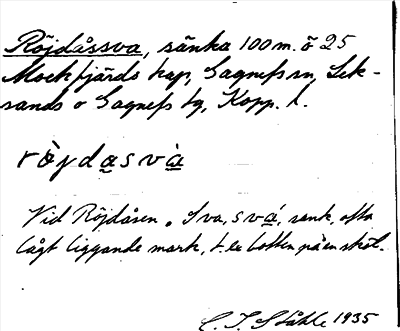 Röjdåssva, sänka 100 m. ö 25
Mockfjärds kap, Gagnefs sn, Lek-
sands o Gagnefs tg, Kopp. l.
rö̀jdasvà
Vid Röjdåsen. Sva, svá, sank, ofta
lågt liggande mark, t. ex botten på en
C. I. Ståhle 1935